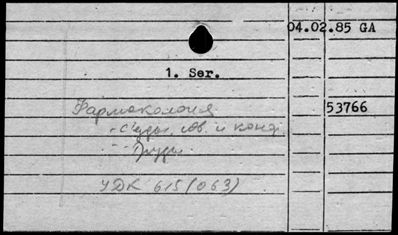 04.02.85 GA
1. Ser.
53766
Фармакология
- Съезды, сов. и конф.
- Труды.
УДК 615(063)